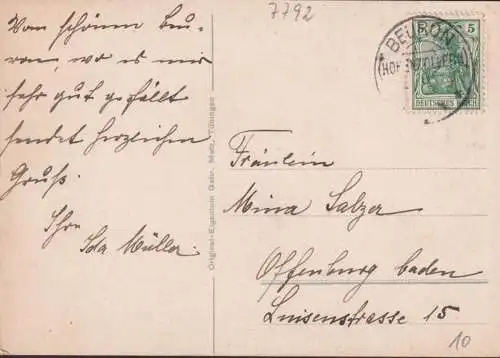 7792
Vom schönen Beu-
ron, wo es mir
sehr gut gefällt
sendet herzlichen
Gruß.
Ihre
Ida Müller.
Original-Eigentum Gebr. Metz, Tübingen
BEURON
(HOHENZOLLERN)
5
DEUTSCHES REICH
Fräulein
Mina Salzer
Offenburg baden
Luisenstrasse 15
10